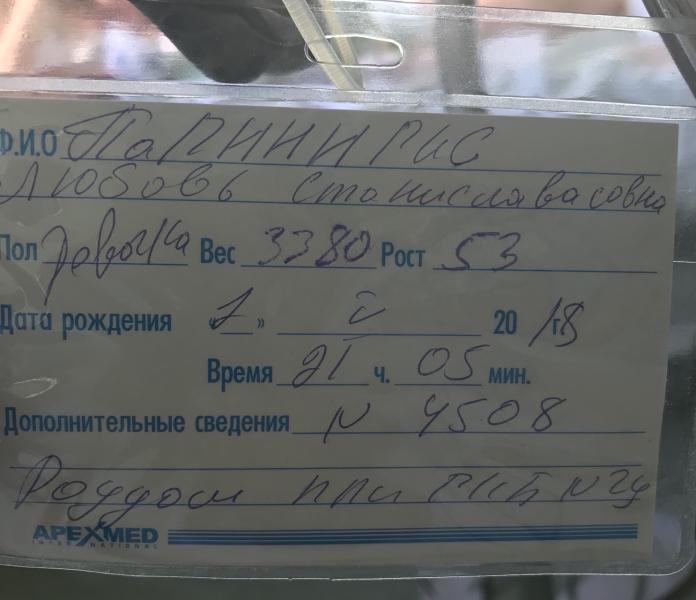 Ф.И.О Папинигис
Любовь Станиславасовна
Пол девочка Вес 3380 Рост 53
Дата рождения «1» V 20 18 г
Время 21 ч. 05 мин.
Дополнительные сведения N 4508
Роддом при ГКБ N 24
APEXMED
INTERNATIONAL